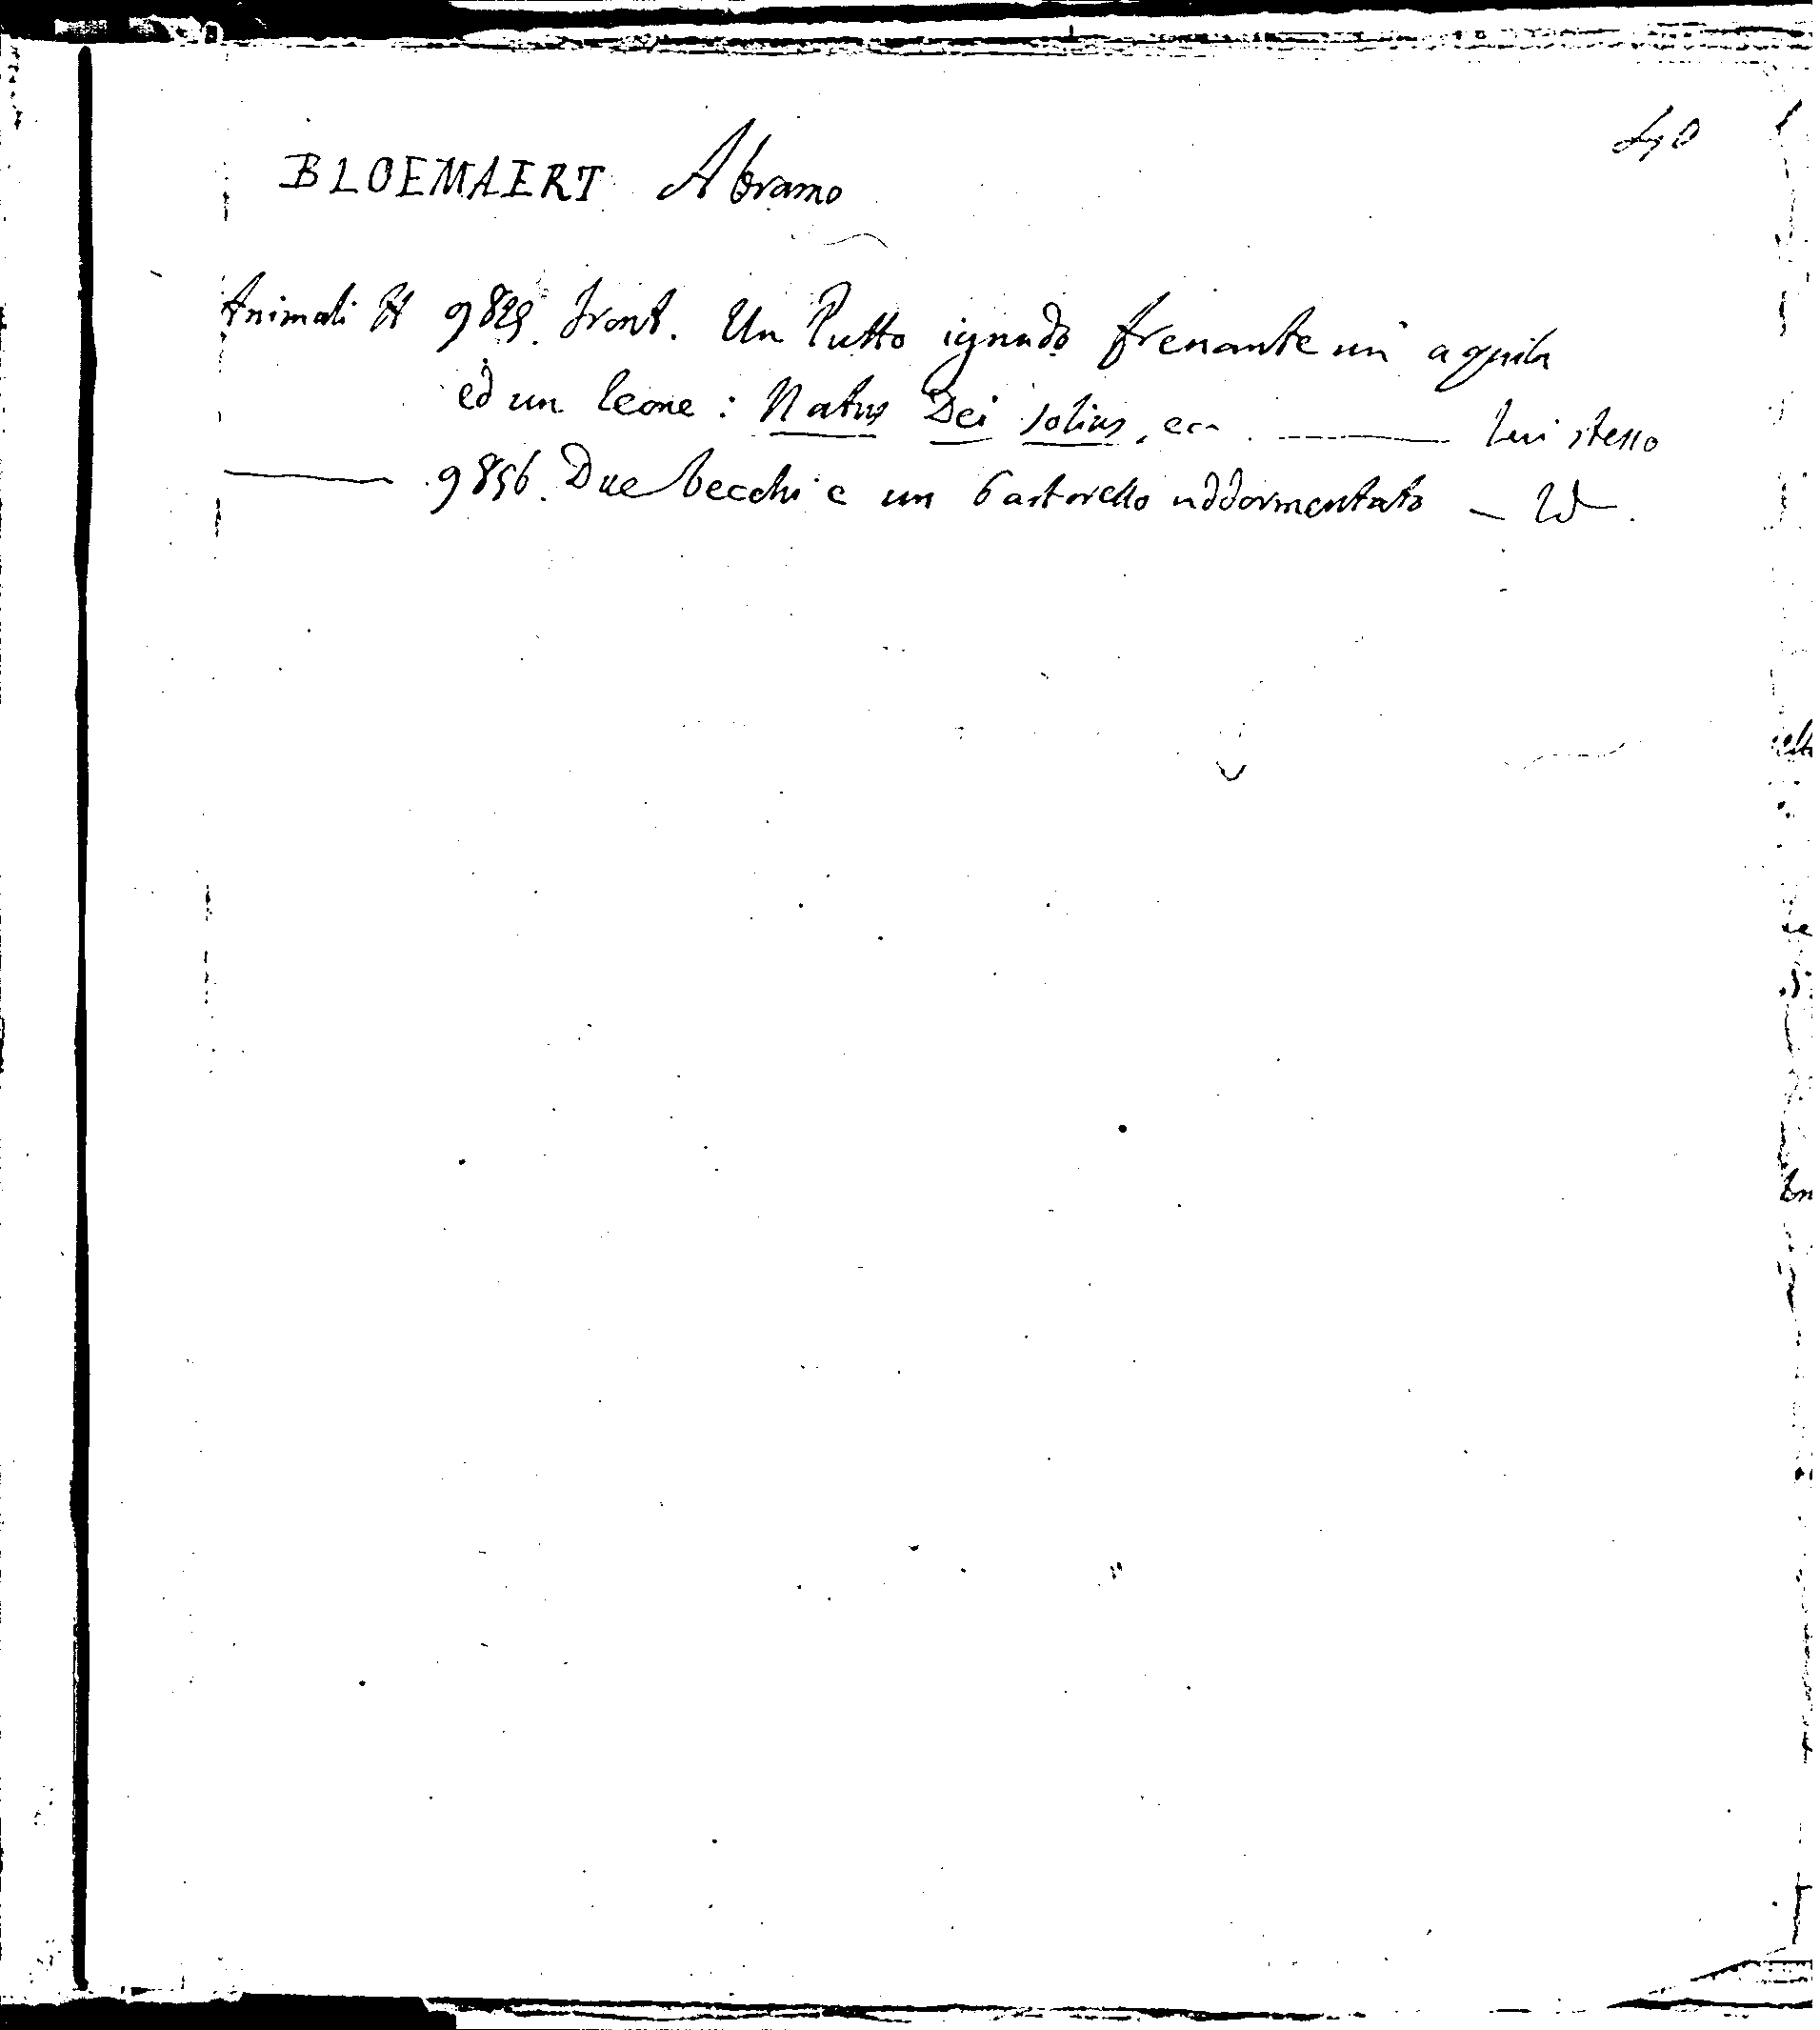 40
BLOEMAERT Abramo
Animali H 9829. front. Un Putto ignudo frenante un' aquila
ed un leone: Natus Dei solius, ecc. Lui stesso
9856. Due becchi e un Pastorello addormentato — Id.